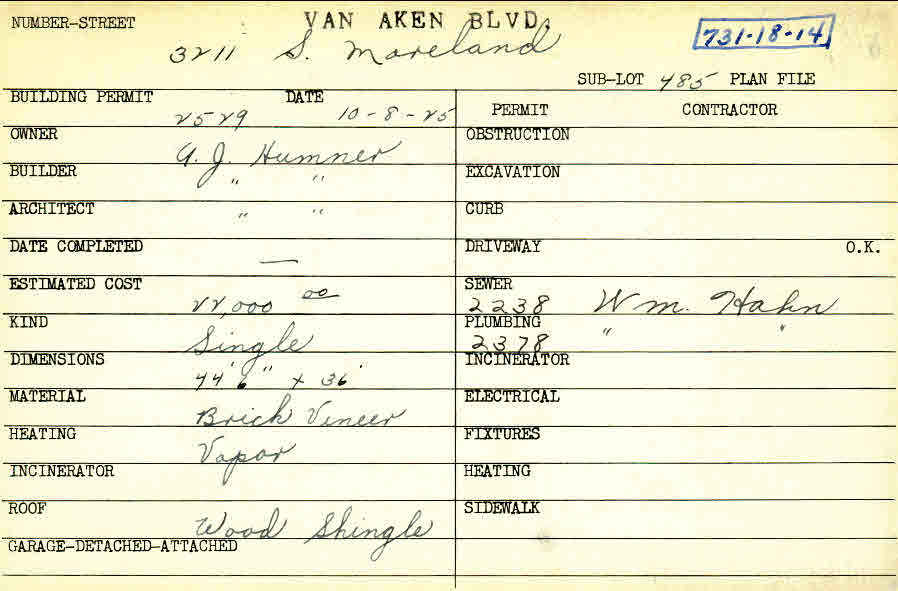 NUMBER-STREET VAN AKEN BLVD.
3211 S. Moreland 731-18-14
SUB-LOT 485 PLAN FILE
BUILDING PERMIT DATE PERMIT CONTRACTOR
2529 10-8-25
OWNER OBSTRUCTION
A. J. Humner
BUILDER EXCAVATION
" "
ARCHITECT CURB
" "
DATE COMPLETED DRIVEWAY O.K.
—
ESTIMATED COST SEWER
22,000 00 2238 Wm. Hahn
KIND PLUMBING
Single 2378 " "
DIMENSIONS INCINERATOR
44' 6" x 36'
MATERIAL ELECTRICAL
Brick Veneer
HEATING FIXTURES
Vapor
INCINERATOR HEATING
ROOF SIDEWALK
Wood Shingle
GARAGE-DETACHED-ATTACHED